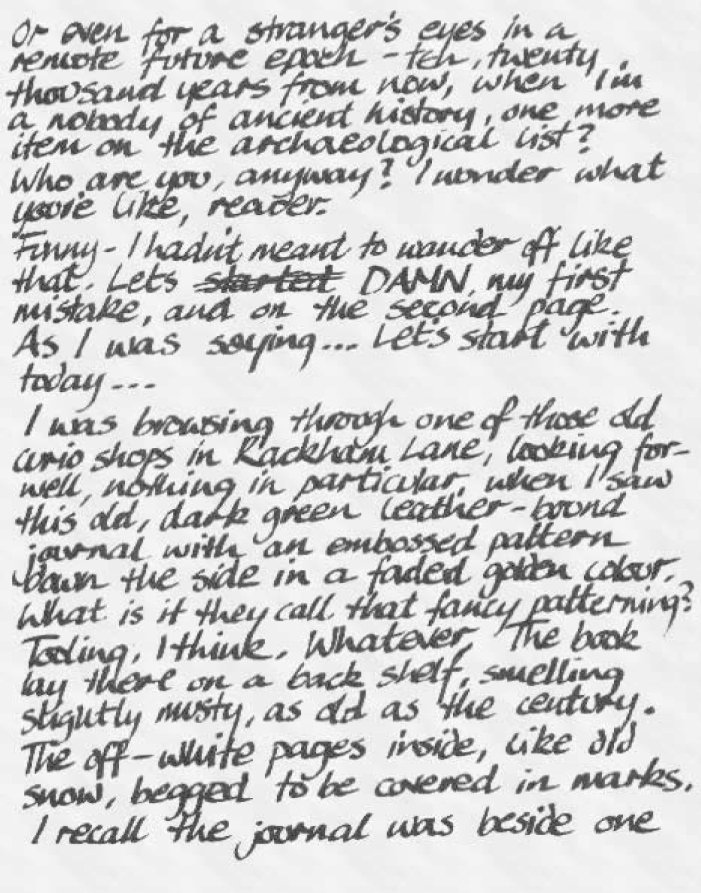 Or even for a stranger's eyes in a
remote future epoch - ten, twenty
thousand years from now, when I'm
a nobody of ancient history, one more
item on the archaeological list?
Who are you, anyway? I wonder what
you're like, reader.
Funny - I hadn't meant to wander off like
that. Let's started DAMN, my first
mistake, and on the second page.
As I was saying... Let's start with
today...
I was browsing through one of those old
curio shops in Rackham Lane, looking for-
well, nothing in particular, when I saw
this old, dark green leather-bound
journal with an embossed pattern
down the side in a faded golden colour.
What is it they call that fancy patterning?
Tooling, I think. Whatever. The book
lay there on a back shelf, smelling
slightly musty, as old as the century.
The off-white pages inside, like old
snow, begged to be covered in marks.
I recall the journal was beside one